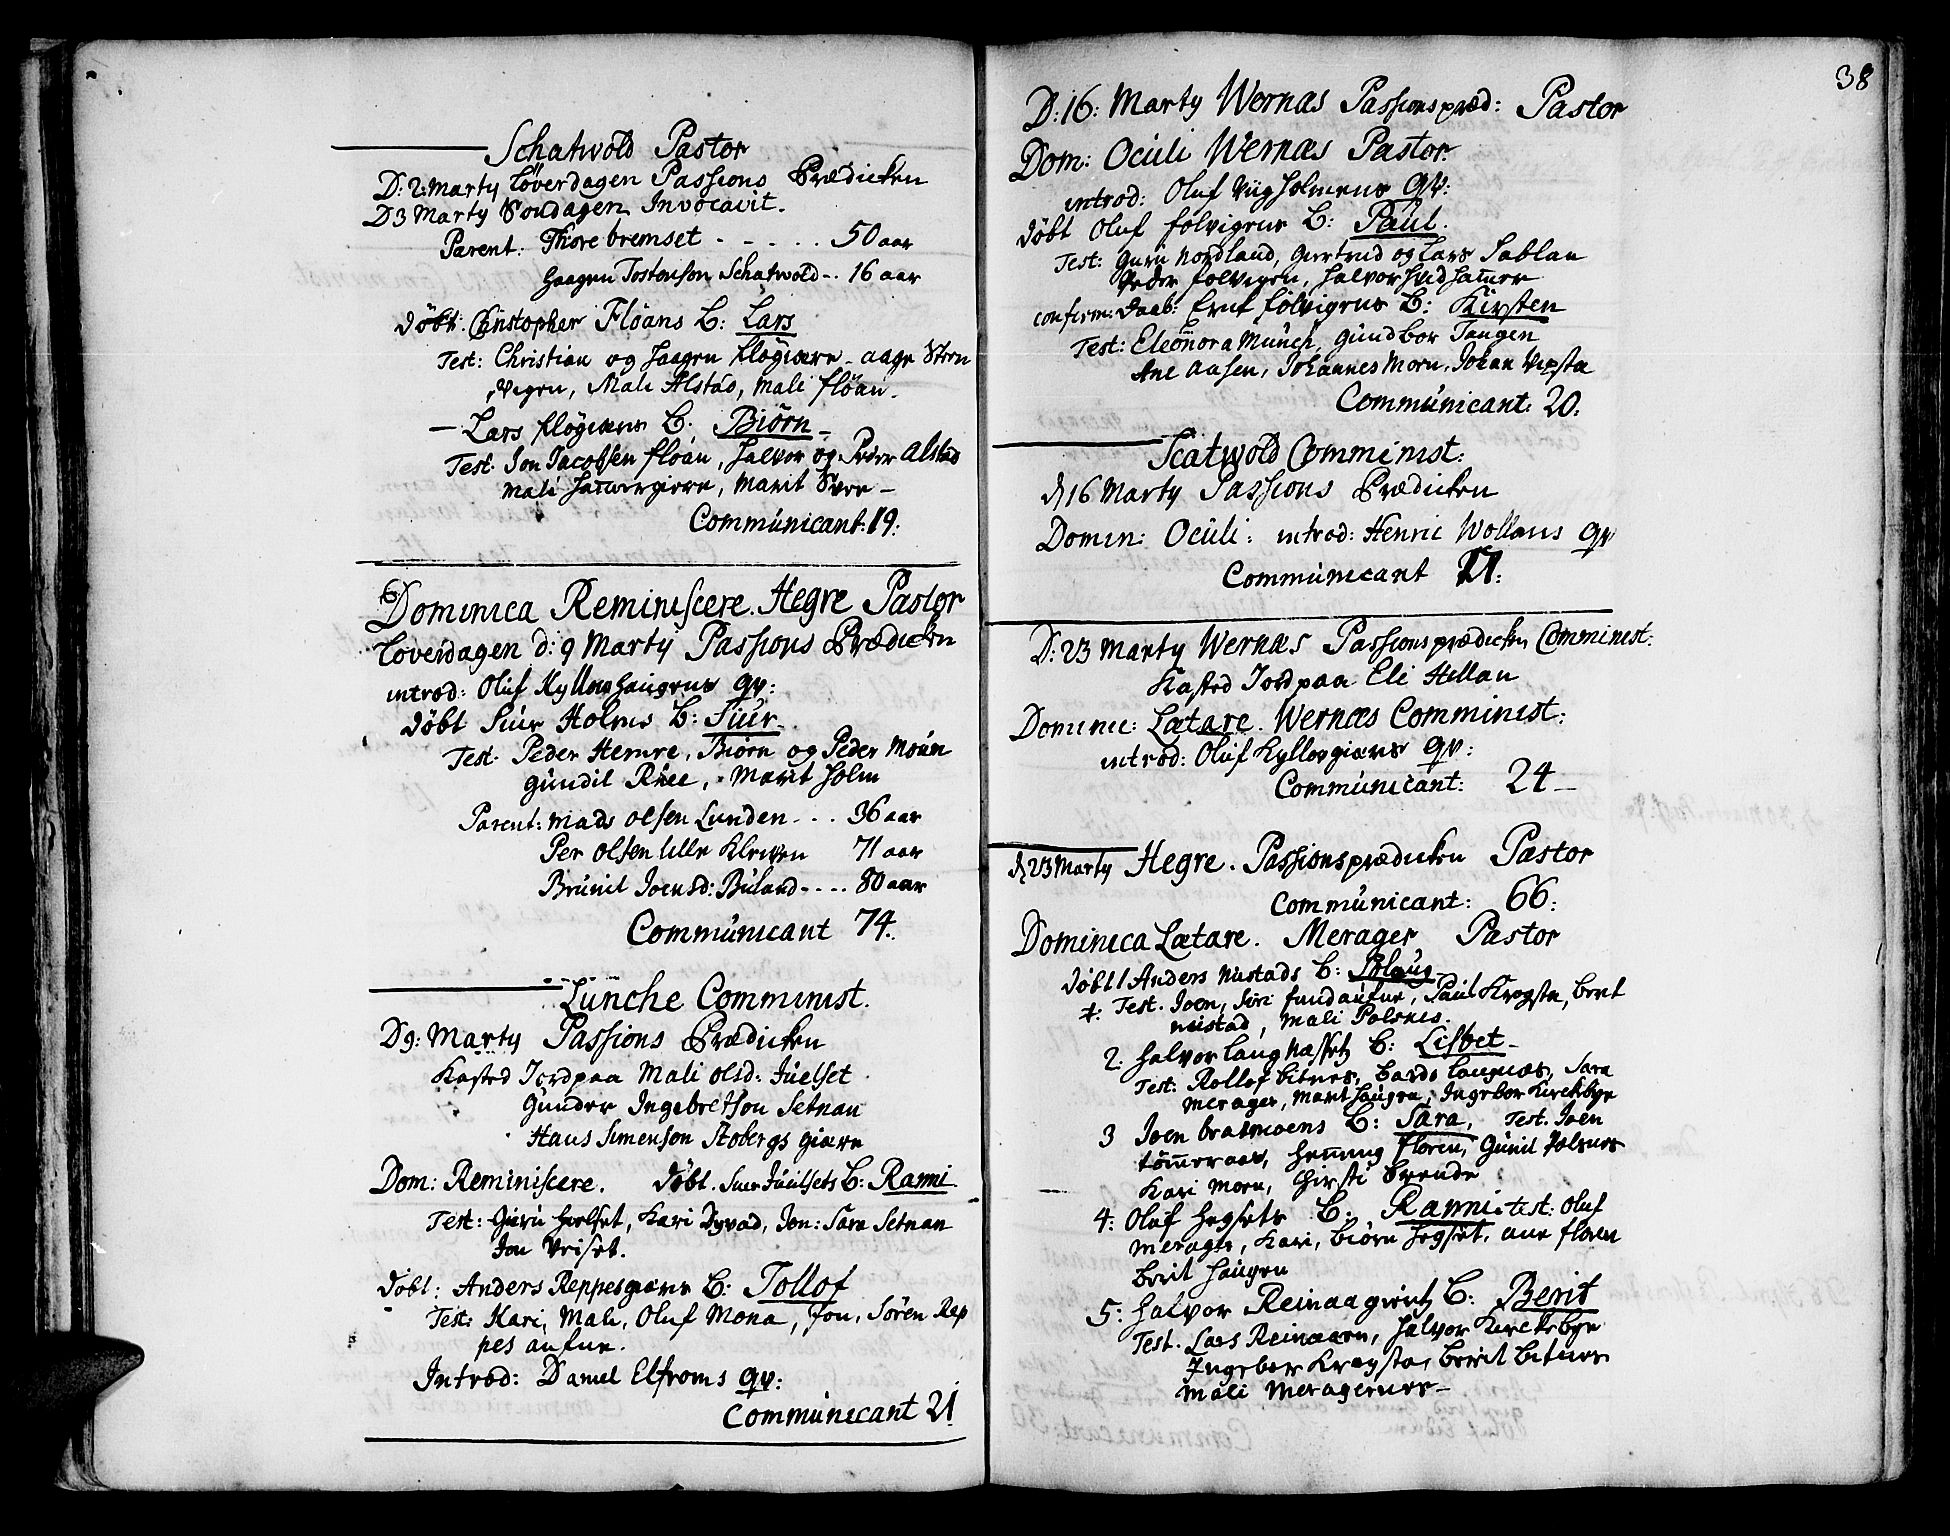 Schatwold Pastor
D: 2: Marty Løverdagen Passions Prædicken
D 3 Marty Søndagen Invocavit.
Parent: Thore bremset - - - . . 50 aar
Haagen Tostensøn Schatwold - . 16 aar
Døbt: Christopher Flöans B: Lars
Test: Christian og Haagen Kløgiære - aage Steen
vegen, Mali Alstad, Mali flöan.
— Lars Kløgiærs B. Biörn -
Test. Jon Jacobsen flöan, Halvor og Peder Alstad
Mali Hammergieren, Marit Svee -
Communicant: 19:
6. Dominica Reminiscere. Hegre Pastor
Løverdagen d: 9 Marty Passions Prædicken
introd: Oluf Kylloshaugens qv:
Døbt Siur Holms B: Siur -
Test. Peder Hemre, Biörn og Peder Moun
Gundil Ruee, Marit Holm
Parent: Mads Olsen Lunden - . . 36 aar
Per Olsen Lille Kleven 71 aar
Brunil Joensd: Buland - . . . 80 aar
Communicant 74.
Lunche Comminist.
D 9: Marty Passions Prædicken
Kasted Jord paa Mali olsd: Juelset
Gunder Ingebretson Setnan
Hans Simenson Stobergs giære
Dom: Reminiscere. Døbt. Siur Juulsets B: Ranni
Test: Guru Hoelset, Kari Dyvad, Jon: Sara Setnan
Jon Vriset.
Døbt: Anders Reppesgiærs B: Tollof
Test: Kari, Mali, Oluf Mona, Jon, Sören Rep
pes aufne.
Introd: Daniel Elfroms qv:
Communicant 21
38
D: 16: Marty Wernæs Passionspræd: Pastor
Dom: Oculi Wernæs Pastor.
introd: Oluf Viigholmens qv:
Døbt Oluf folvigens B: Paul.
Test: Guru Nordland, Giertrud og Lars Sablan
Peder folvigen, Halvor Hvidhamer
confirm: Daab: Eruf folvigens B: Kirsten
Test: Eleonora Munch, Gundbor Tangen
Ane Aasen, Johannes Morn, Johan Vepsta
Communicant: 20:
Scatwold Comminist:
d 16 Marty Passions Prædicken
Domin: Oculi: introd: Henric Wollans qv
Communicant 21:
D: 23 Marty Wernæs Passionsprædicken Comminist:
Kasted Jord paa Eli Hellan
Dominic: Lætare. Wernæs Comminist:
introd: Oluf Kyllosgiærs qv:
Communicant: 24 -
d 23 Marty Hegre. Passionsprædicken Pastor
Communicant: 66:
Dominica Lætare. Merager Pastor
Døbt 1 Anders Mustads B: Solaug
Test. Joen, Siri fundaufne, Paul Krogsta, berit
mustad, Mali Polsnes.
2. Halvor Langnassetz B: Lisbet -
Test: Rollof bitnes, Bardo Langnæs, Sara
Merager, Marit Haugen, Ingebor Kirckebye
3 Joen bratmoens B: Sara, Test. Joen
tømmeraas, Henning Floren, Gunil Polsnes
Kari Morn, Chirsti Brende
4: Oluf Hegsets B. Ranni. test: Oluf
Merager, Kari, Biörn Hegset, ane floren
Berit Haugen
5: Halvor Reinaagientz B: Berit
Test. Lars Reinaaen, Halvor Kirckebye
Ingebor Krogsta, Berit bitnes
Mali Meragernes -